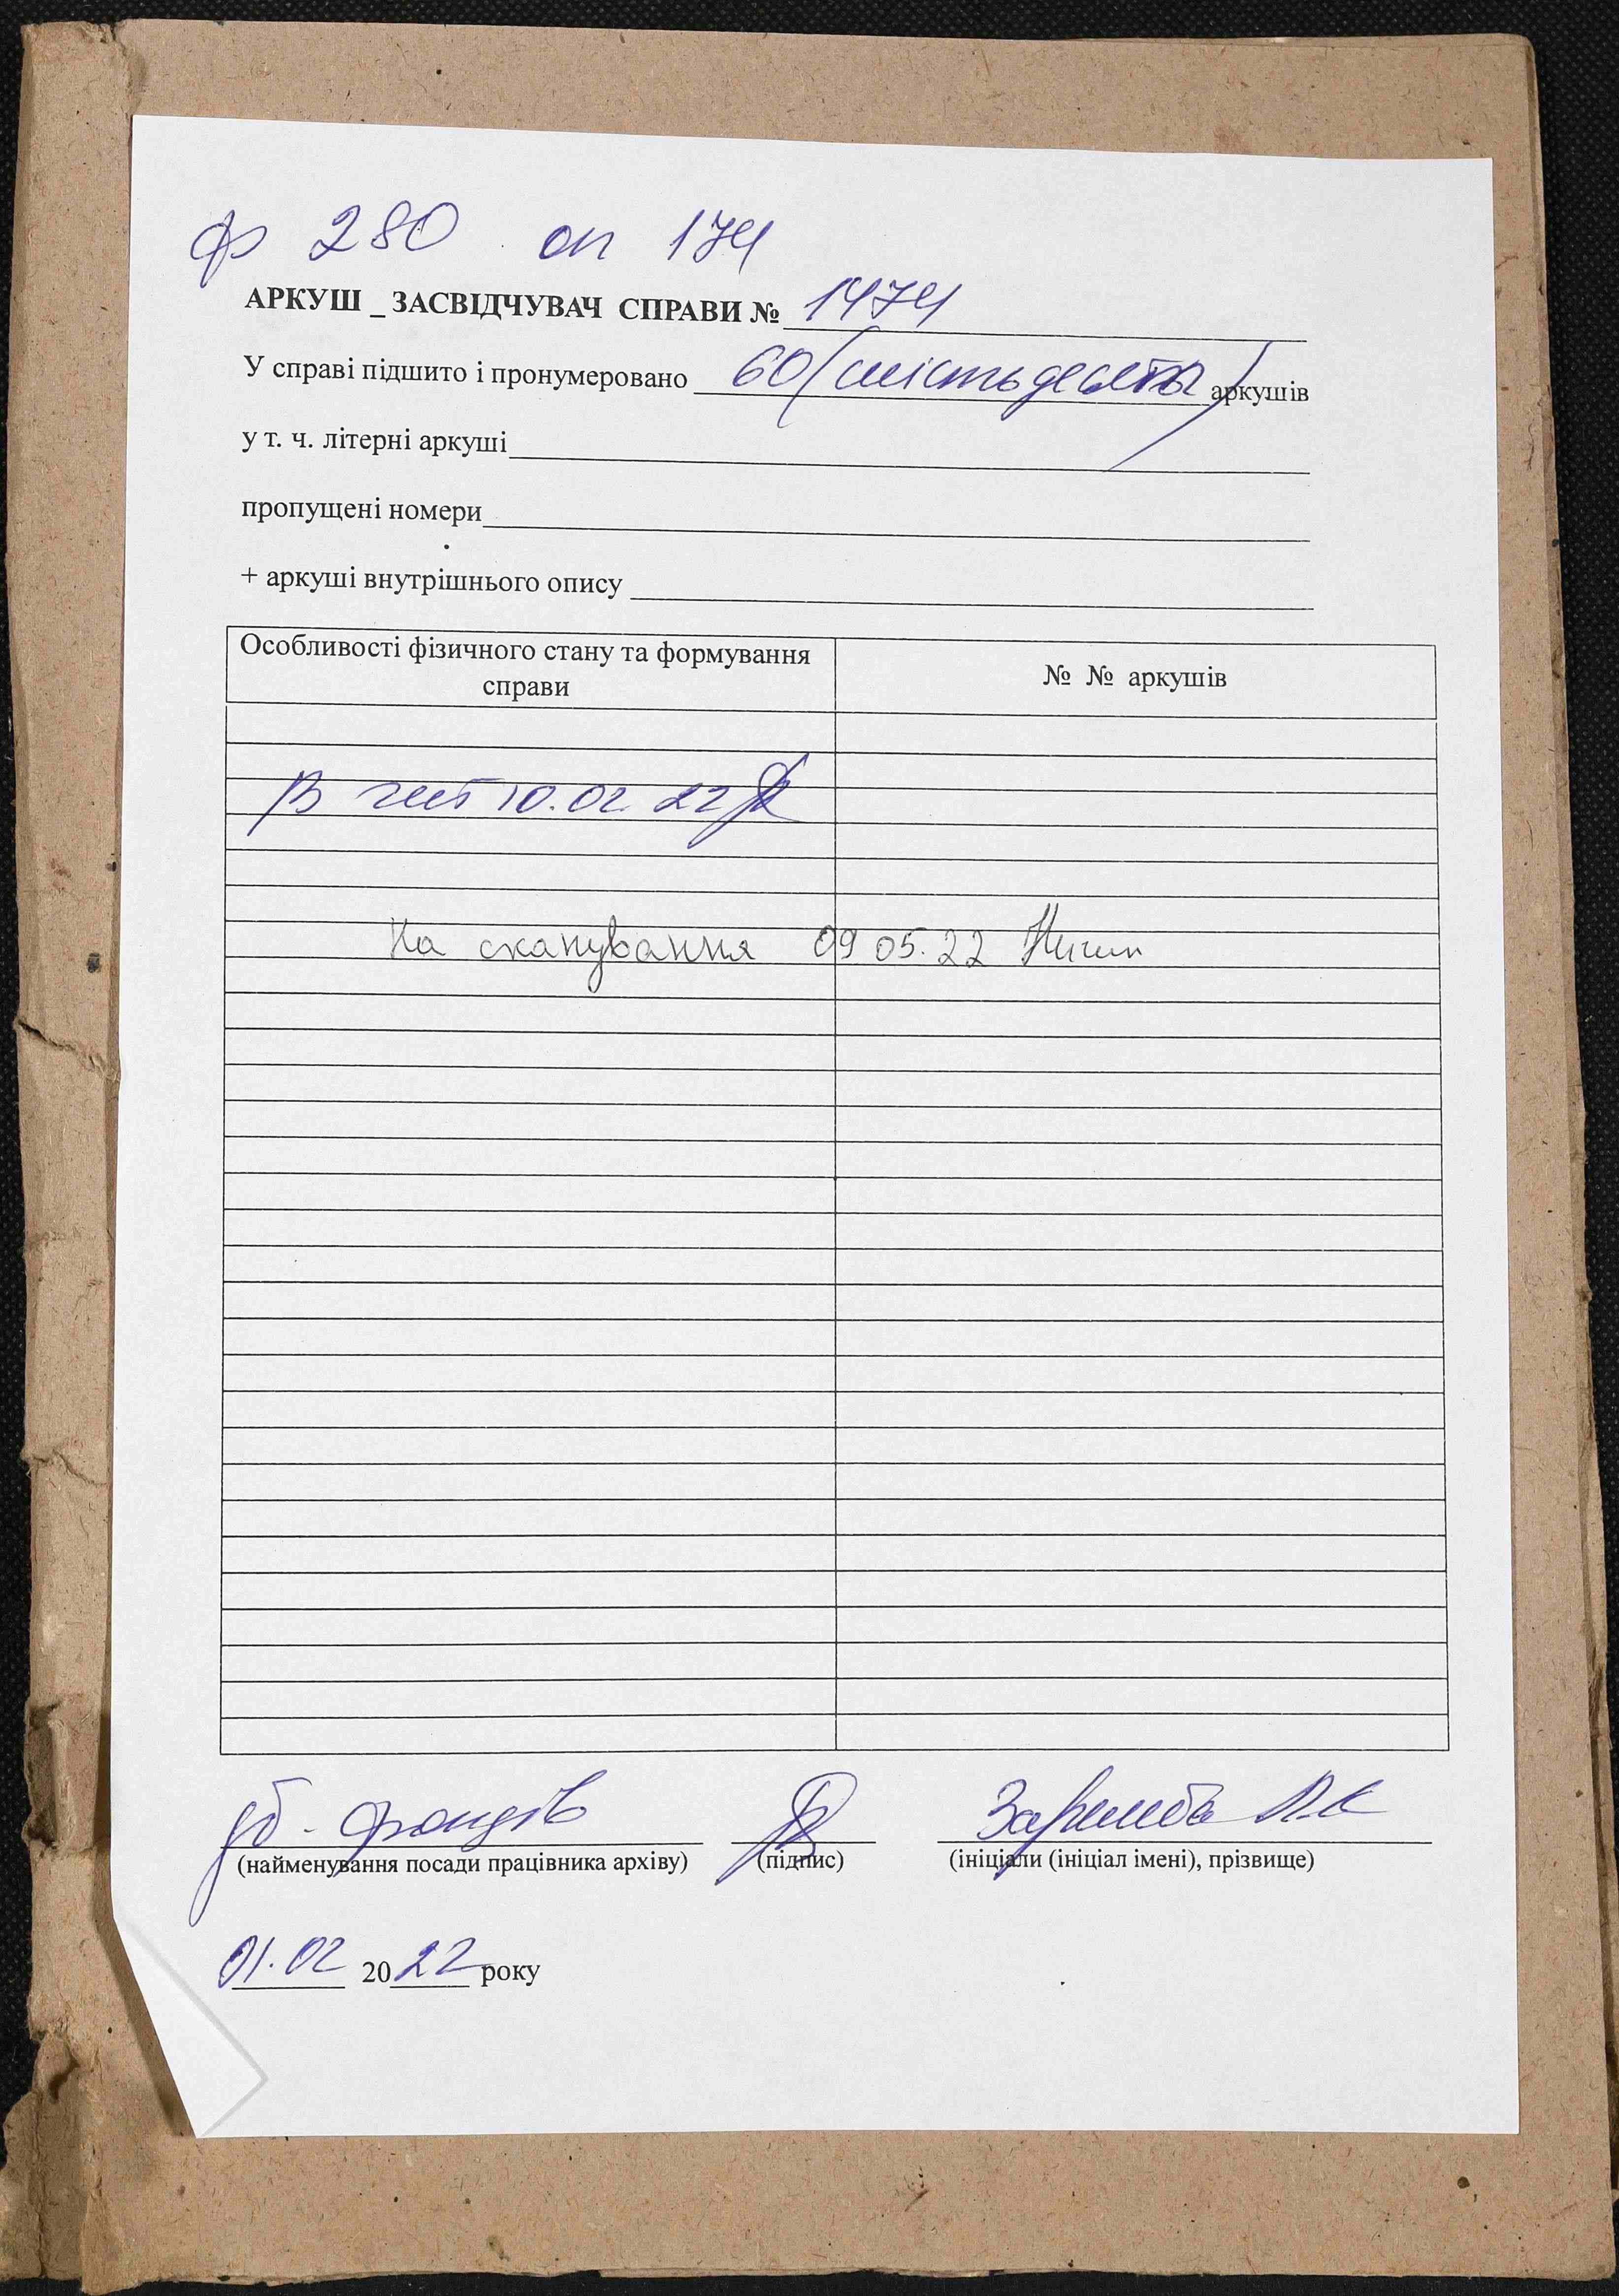 ф 280 оп 174
АРКУШ _ ЗАСВІДЧУВАЧ СПРАВИ № 1474
У справі підшито і пронумеровано 60 (шістьдесяти) аркушів
у т. ч. літерні аркуші
пропущені номери
+ аркуші внутрішнього опису
Особливості фізичного стану та формування справи
№ № аркушів
В чит 10.02.22
На сканування 09 05.22
фондів
(найменування посади працівника архіву) (підпис) (ініціали (ініціал імені), прізвище)
01.02 2022 року